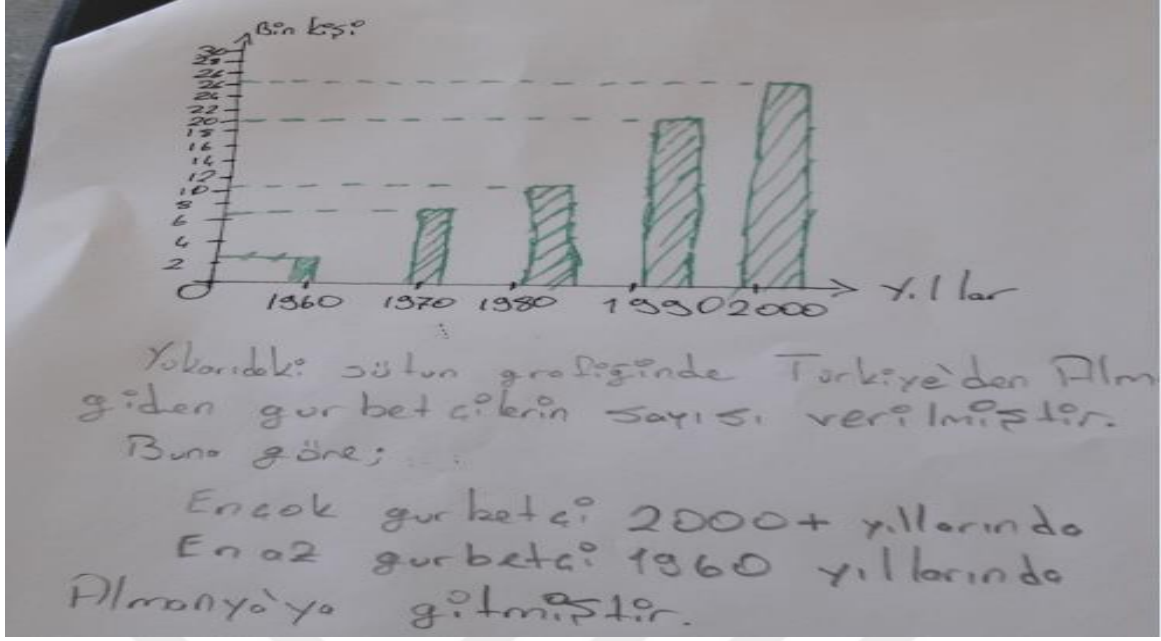 Bin kişi
30
28
26
26
24
22
20
18
16
14
12
10
8
6
4
2
O
1960 1970 1980 1990 2000 Yıllar
Yukarıdaki sütun grafiğinde Türkiye'den Alm
giden gurbetçilerin sayısı verilmiştir.
Buna göre;
Ençok gurbetçi 2000+ yıllarında
En az gurbetçi 1960 yıllarında
Almanya'ya gitmiştir.